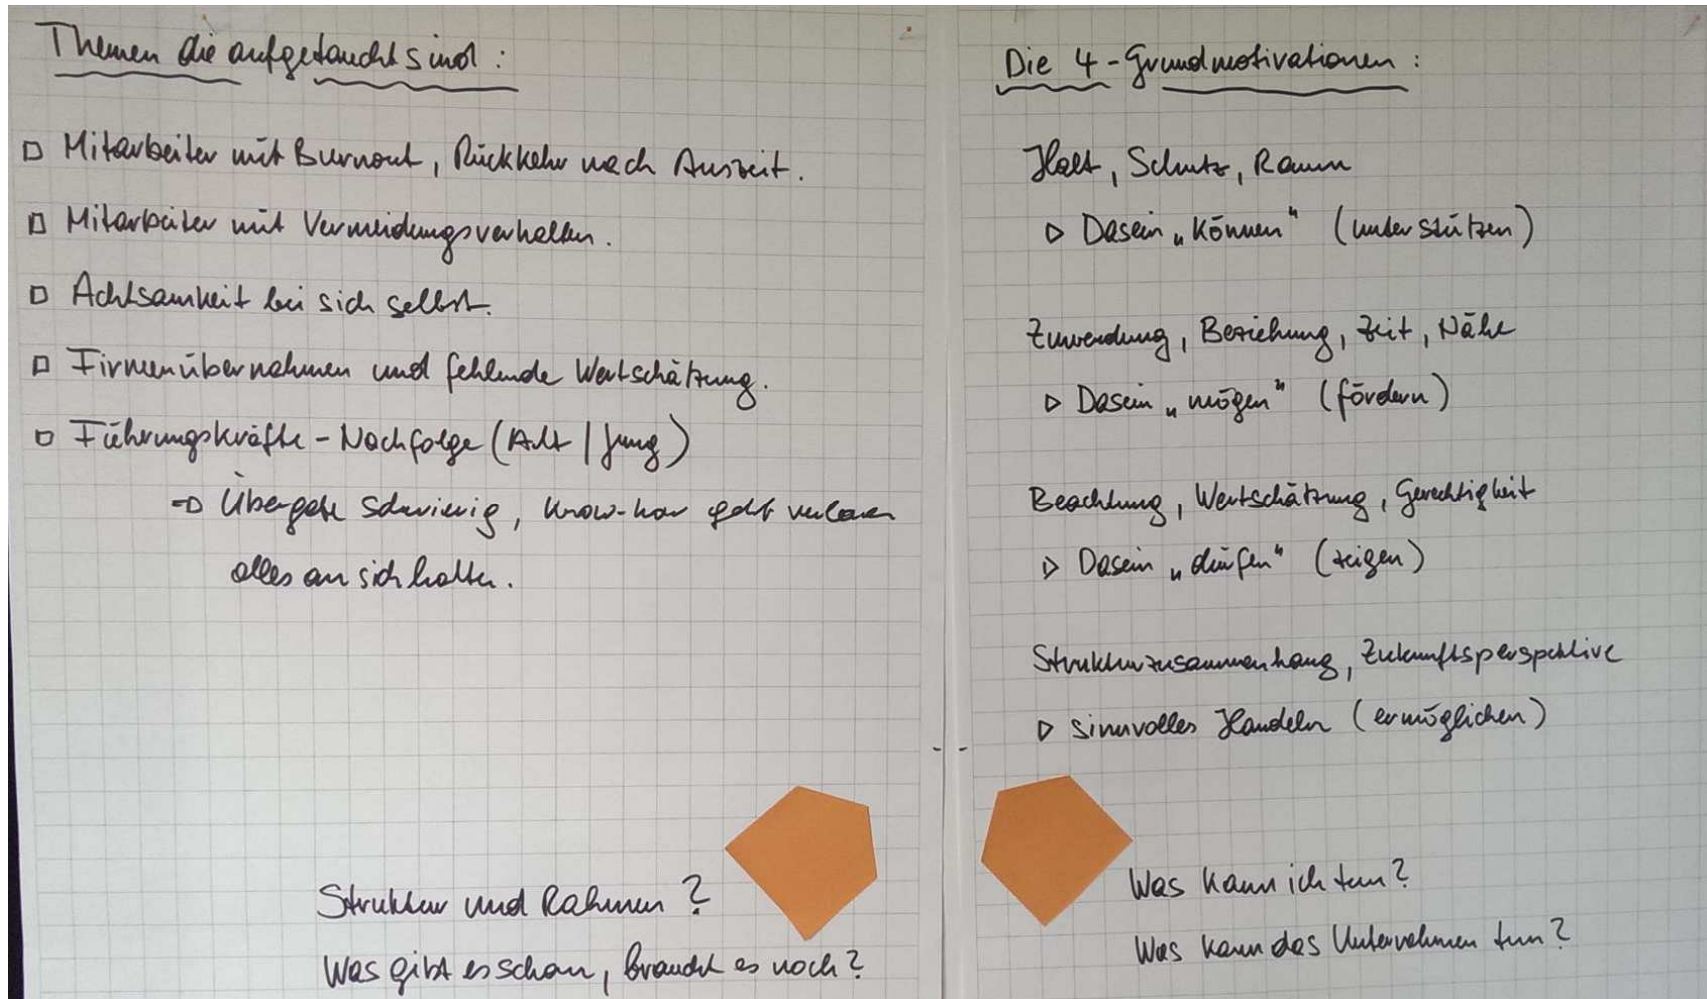 Themen die aufgetaucht sind :
□ Mitarbeiter mit Burnout, Rückkehr nach Auszeit.
□ Mitarbeiter mit Vermeidungsverhalten.
□ Achtsamkeit bei sich selbst.
□ Firmenübernahmen und fehlende Wertschätzung.
□ Führungskräfte - Nachfolge (Alt | Jung)
⇒ Übergabe schwierig, know-how geht verloren
alles an sich halten.
Struktur und Rahmen ?
Was gibt es schon, braucht es noch ?
Die 4 - Grundmotivationen :
Halt, Schutz, Raum
▷ Dasein „können“ (unterstützen)
Zuwendung, Beziehung, Zeit, Nähe
▷ Dasein „mögen“ (fördern)
Beachtung, Wertschätzung, Gerechtigkeit
▷ Dasein „dürfen“ (zeigen)
Strukturzusammenhang, Zukunftsperspektive
▷ sinnvolles Handeln (ermöglichen)
Was kann ich tun ?
Was kann das Unternehmen tun ?